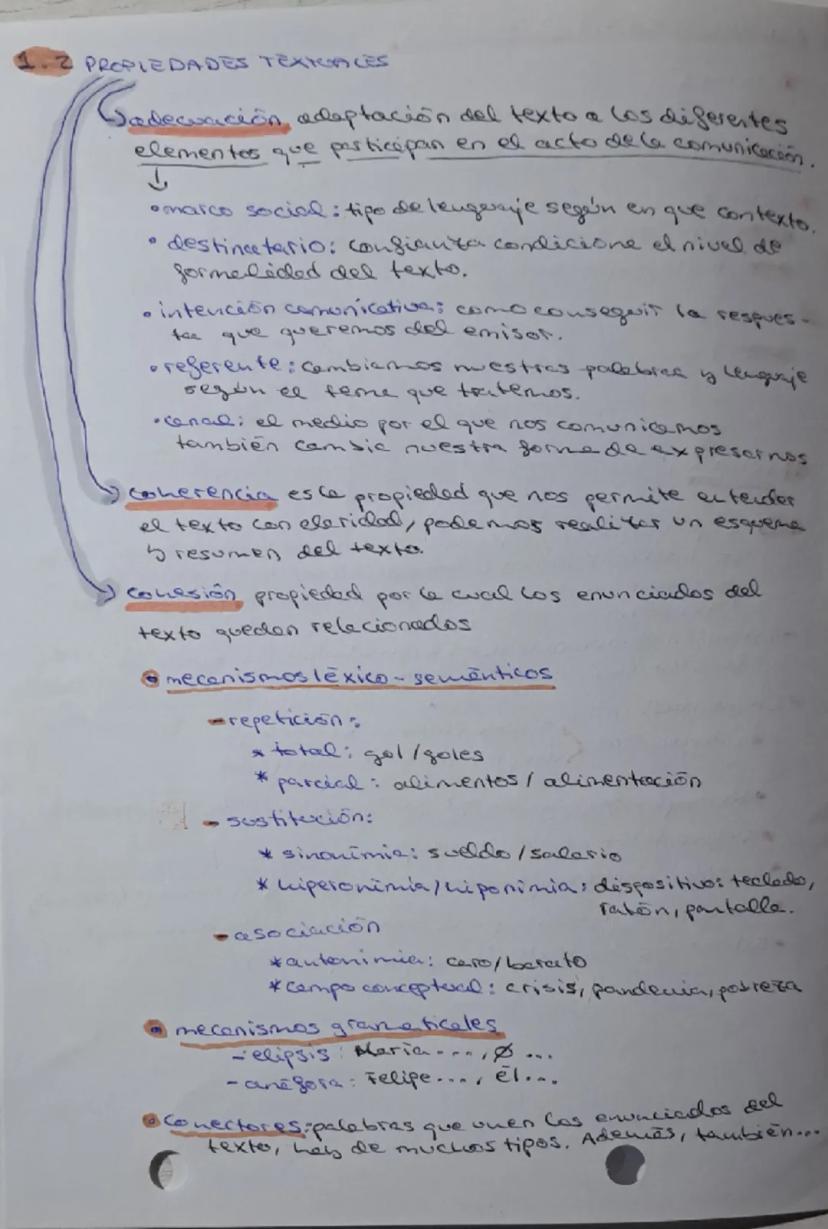 1.2 PROPIEDADES TEXTUALES
adecuación adaptación del texto a los diferentes
elementos que participan en el acto de la comunicación.
• marco social: tipo de lenguaje según en que contexto.
• destinatario: confianza condiciona el nivel de
formalidad del texto.
• intención comunicativa: como conseguir la respues-
ta que queremos del emisor.
• referente: cambiamos nuestras palabras y lenguaje
según el tema que tratemos.
• canal: el medio por el que nos comunicamos
también cambia nuestra forma de expresarnos
coherencia es la propiedad que nos permite entender
el texto con claridad, podemos realizar un esquema
y resumen del texto.
cohesión propiedad por la cual los enunciados del
texto quedan relacionados
• mecanismos léxico-semánticos
- repetición:
* total: gol/goles
* parcial: alimentos/alimentación
- sustitución:
* sinonímia: sueldo/salario
* hiperonímia/hiponimia: dispositivo: teclado,
ratón, pantalla.
- asociación
* antonimia: caro/barato
* campo conceptual: crisis, pandemia, pobreza
• mecanismos gramaticales
- elipsis: María ..., Ø ...
- anáfora: Felipe ..., él...
• conectores: palabras que unen los enunciados del
texto, hay de muchos tipos. Además, también...